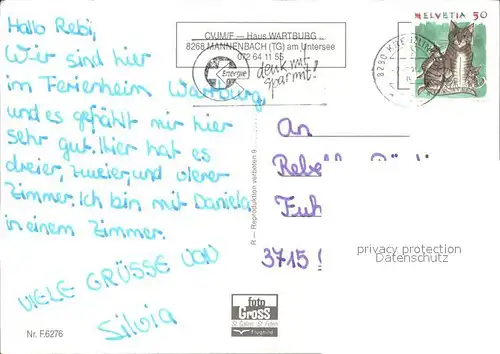 Hallo Rebi,
Wir sind hier
im Ferienheim Wartburg,
und es gefählt mir hier
sehr gut. Hier hat es
dreier, zweier, und vierer
Zimmer. Ich bin mit Daniela
in einem Zimmer.
VIELE GRÜSSE VON
Silvia
Nr. F.6276
CVJM/F – Haus WARTBURG
8268 MANNENBACH (TG) am Untersee
072 64 11 55
Energie
denk mit
sparmit!
8290
HELVETIA 50
R — Reproduktion verboten 9
An
3715
privacy protection
Datenschutz
foto
GROSS
St. Gallen St. Fiden
Flugbild